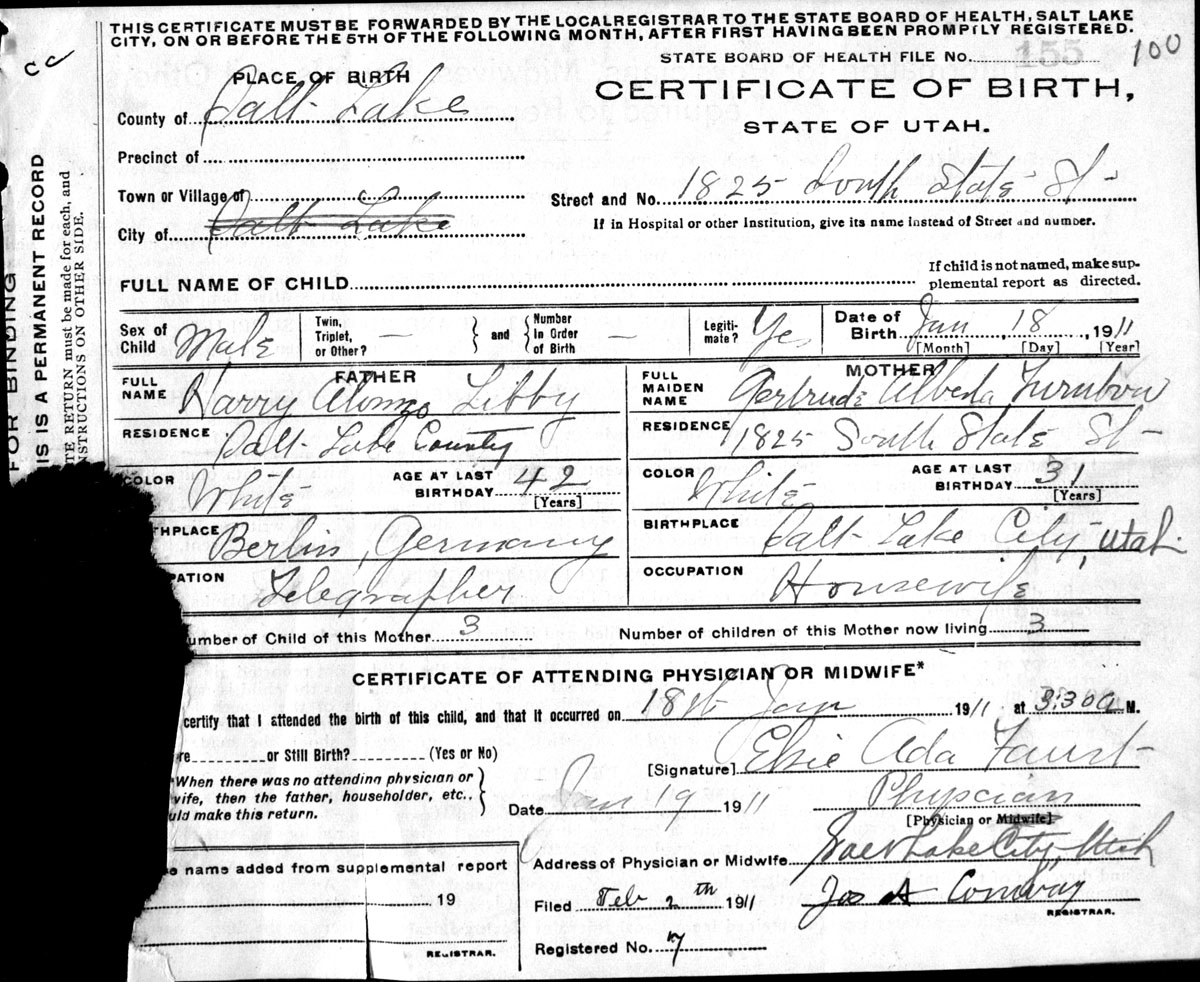 THIS CERTIFICATE MUST BE FORWARDED BY THE LOCAL REGISTRAR TO THE STATE BOARD OF HEALTH, SALT LAKE
CITY, ON OR BEFORE THE 5TH OF THE FOLLOWING MONTH, AFTER FIRST HAVING BEEN PROMPTLY REGISTERED.
STATE BOARD OF HEALTH FILE No. 155 100
cc
PLACE OF BIRTH
CERTIFICATE OF BIRTH,
STATE OF UTAH.
County of Salt Lake
Precinct of
Town or Village of
Street and No. 1825 South State St
City of Salt Lake
If in Hospital or other Institution, give its name instead of Street and number.
FULL NAME OF CHILD
If child is not named, make sup-
plemental report as directed.
Sex of Child Male
Twin, Triplet, or Other? —
and
Number In Order of Birth —
Legiti-mate? Yes
Date of Birth Jan 18, 1911
[Month] [Day] [Year]
FATHER
FULL NAME Harry Alonzo Libby
RESIDENCE Salt Lake County
COLOR White AGE AT LAST BIRTHDAY 42 [Years]
THPLACE Berlin, Germany
PATION Telegrapher
MOTHER
FULL MAIDEN NAME Gertrude Alveda Turnbow
RESIDENCE 1825 South State St
COLOR White AGE AT LAST BIRTHDAY 31 [Years]
BIRTHPLACE Salt Lake City, Utah.
OCCUPATION Housewife
umber of Child of this Mother 3 Number of children of this Mother now living 3
CERTIFICATE OF ATTENDING PHYSICIAN OR MIDWIFE*
certify that I attended the birth of this child, and that it occurred on 18th Jan 1911 at 3:30 a M.
re or Still Birth? (Yes or No)
[Signature] Elsie Ada Faust
*When there was no attending physician or
wife, then the father, householder, etc.,
uld make this return.
Date Jan 19 1911
Physcian
[Physician or Midwife]
Address of Physician or Midwife Salt Lake City, Utah
Filed Feb 2th 1911 Jos A Conway
REGISTRAR.
Registered No. 7
e name added from supplemental report
19
REGISTRAR.
FOR BINDING
IS IS A PERMANENT RECORD
TE RETURN must be made for each, and
NSTRUCTIONS ON OTHER SIDE.